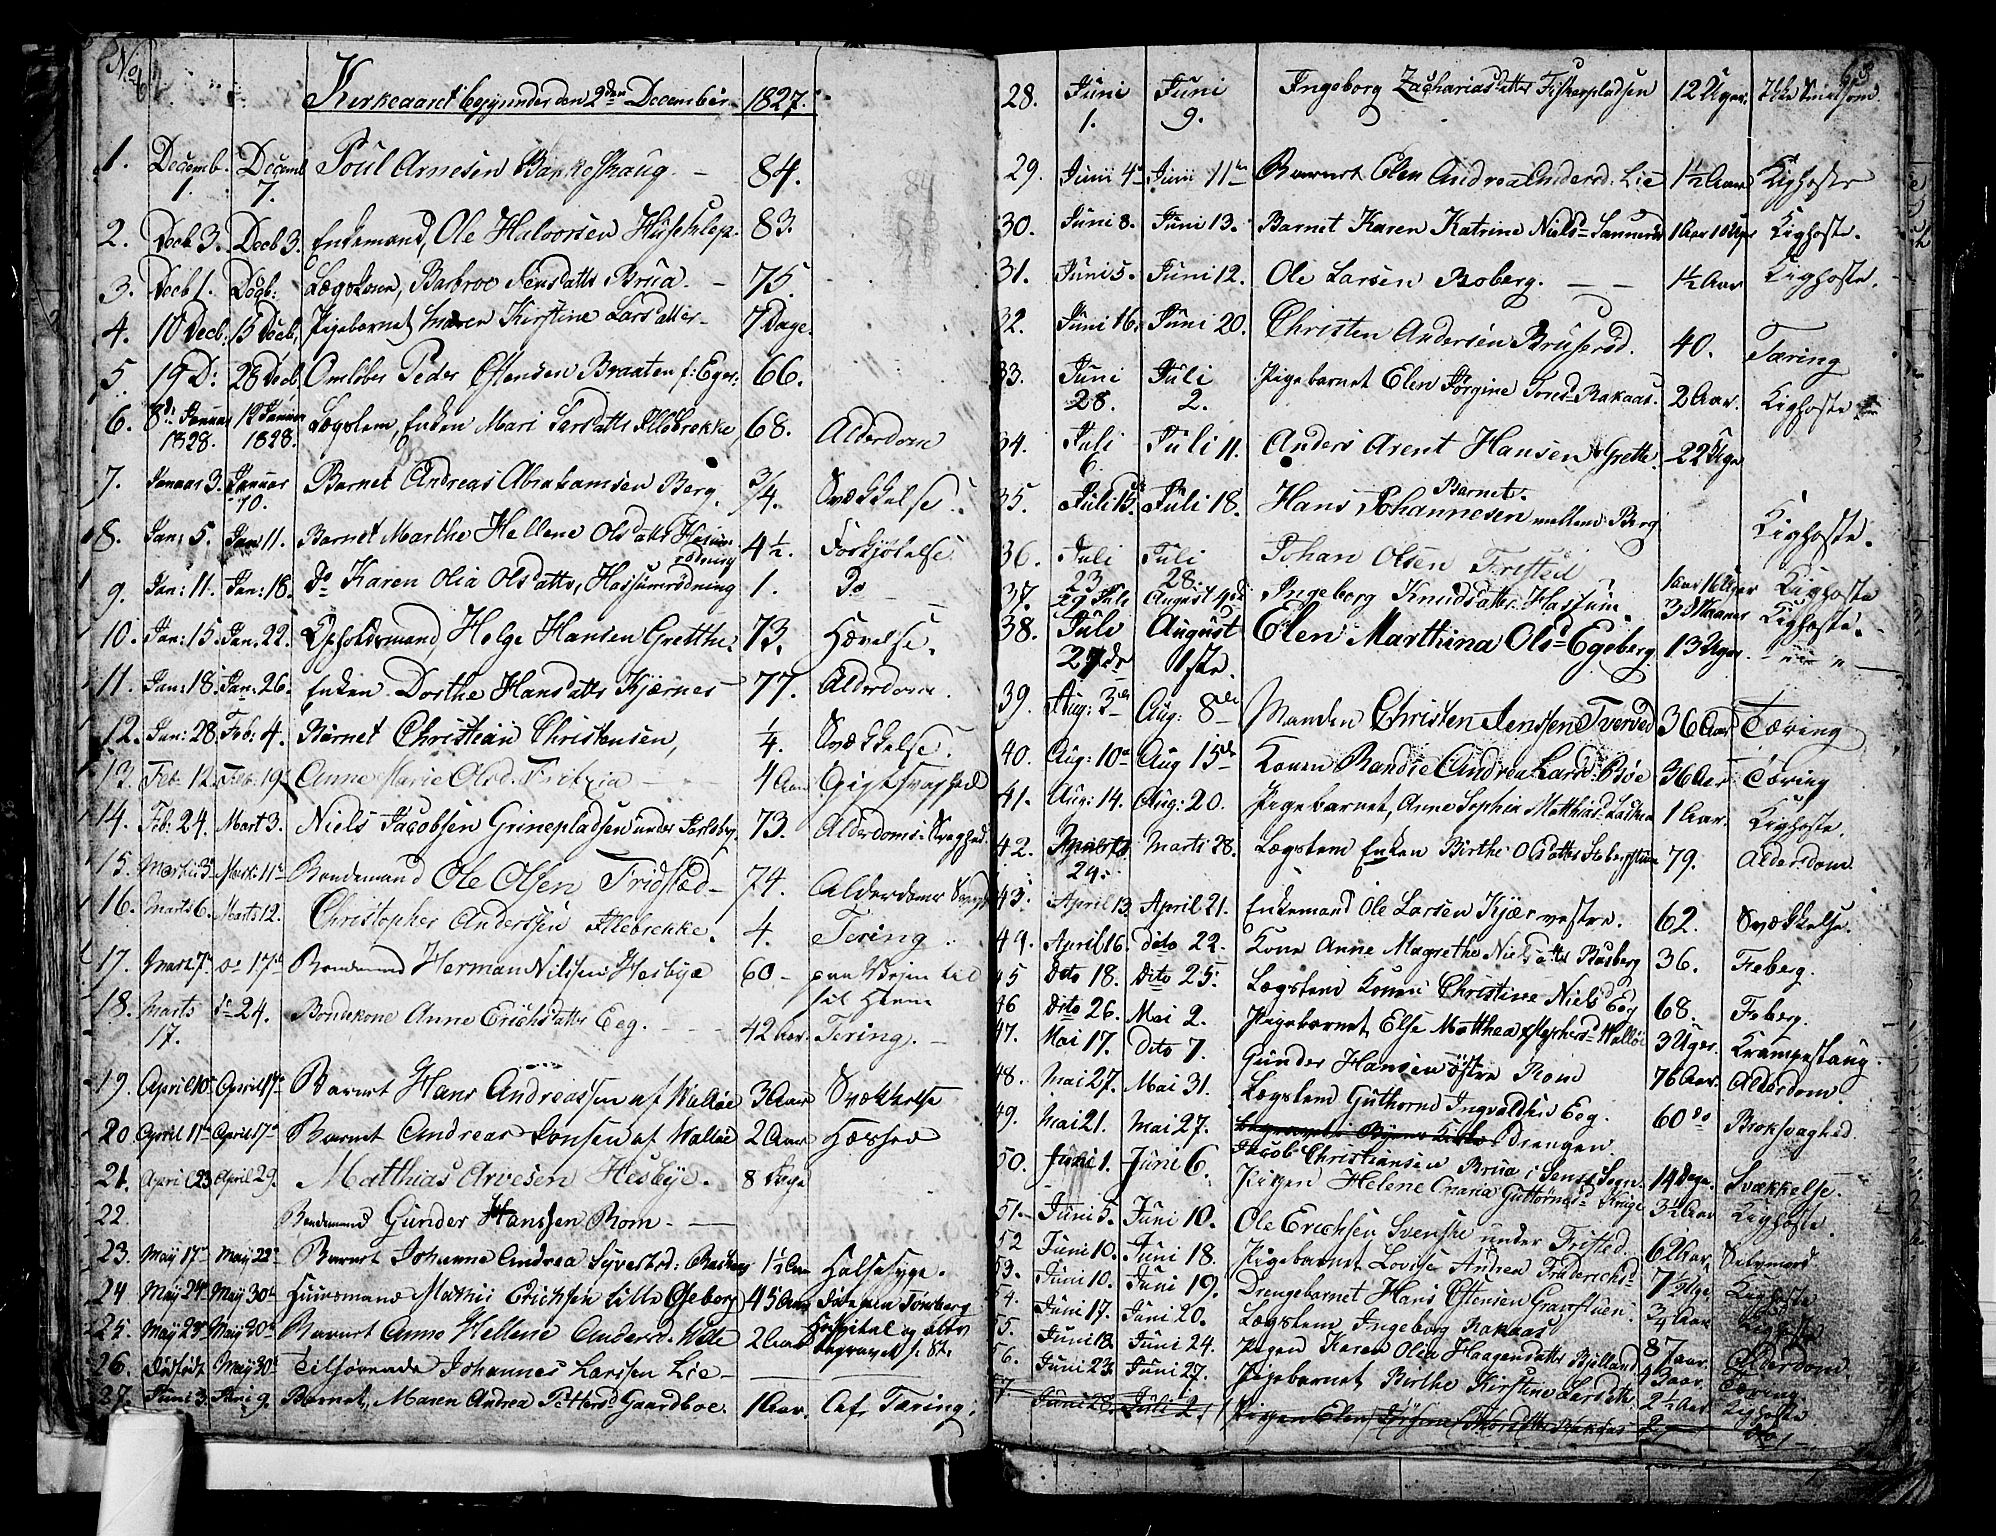 No
Kirkeaaret begynder den 2den December 1827.
1. Decemb. 1. Decemb 7. Poul Arnesen Bakkeshaug 84.
2. Decb 3. Decb 3. Enkemand, Ole Halvorsen 83.
3. Decb 1. Decb: Lægskone, Barbroe Brua 75.
4. 10 Decb. 15 Decb. Pigebarnet Maren Kirstine Larsdatter 7 Dage.
5. 19 D: 28 Decb. Omløber Peder Braaten f: Eger: 66.
6. 8de Januar 1828. Januar 1828. Lægslem, Enken Mari Larsdatter Illebrekke 68. Alderdom
7. Januar 3. Januar 10. Barnet Andreas Abrahamsen Berg. 3/4. Svækkelse.
8. Jan: 5. Jan 11. Barnet Marthe Hellene Olsdatter 4 1/2. Forkjølelse
9. Jan: 11. Jan: 18. Do Karen Olia Olsdattr, Hassumrødning 1. Do
10. Jan: 15. Jan: 22. Opholdsmand, Helge Hansen Gretthe. 73. Hævelse.
11. Jan: 18. Jan: 26. Enken Dorthe Hansdatter Kjærnes 77. Alderdom.
12. Jan: 28. Feb: 4. Barnet Christian Christensen, 1/4. Svækkelse.
13. Feb. 12. Feb. 19. Anne Marie Olsd. 4 Aar Gigtsvaghed
14. Feb. 24. Mart 3. Niels Jacobsen Grinepladsen under Jarlsby. 73. Alderdoms Svaghed
15. Marti: 3. Mart: 11 Bondemand Ole Olsen Fridstæd 74. Alderdoms
16. Marts 6. Marts 12. Christopher Anderssen Illebrekke. 4. Tering
17. Mart 7. do 17 Bondemand Herman Nilssen Hesbye 60 paa Veien til
18. Marts 17. do 24. Bondekone Anne Erichsdatter Eeg. 42 Aar. Tering.
19. April 10 April 17 Barnet Hans Andreassen af Walløe 3 Aar Svækkelse
20 April 11 April 17 Barnet Andreas Jonsen af Walløe 2 Aar Hæshed
21. April 23 April 29. Matthias Arvesen Hesbye. 8 Dage
22. Bondemand Gunder Hanssen Rom.
23. May 17 May 22 Barnet Johanne Andrea Syvertsd: 1 1/2 Aar Halssyge.
24 May 24 May 30 Huusmand Mathis Erichsen lille Oseberg 45 Aar døde paa Tønsberg
Hospital og blev
25. May 25 May 30 Barnet Anne Hellene Andersd. 2 Aar begravet s. St.
26. May 30 Tilførende Johannes Larssen Lie
27. Juni 3. Juni 9. Barnet, Maren Andrea Pettersd Gaardboe. 1 Aar. Af Tæring.
28. Juni 1. Juni 9. Ingeborg Zachariasdatter Fiskerpladsen 12 Uger.
29. Juni 4 Juni 11 Barnet Elen Andrea Andersd: Lie 1 1/2 Aar Kighoste
30. Juni 8. Juni 13. Barnet Karen Katrine Nielsd 1 Aar Kighoste.
31. Juni 5. Juni 12. Ole Larsen Roberg. 1 1/2 Aar Kighoste.
32. Juni 16. Juni 20. Christen Andersen Bruserød. 40. Tæring
33. Juni 28. Juli 2. Pigebarnet Elen Jørgine Tord Rakaas. 2 Aar. Kighoste
34. Juli 6. Juli 11. Anders Arent Hansen Grette. 22 Uger
35. Juli 15 Juli 18. Barnet. Hans Johannesen mellem Berg Kighoste.
36. Juli 23 Juli 28. Johan Olsen Fristed 1 Aar 16 Uger Kighoste
37. 29 Juli August 4de Ingeborg Knudsdatter Hassum. 3 Maaner Kighoste.
38. Juli 27de August 1ste. Elen Marthina Olsd Egeberg 13 Uger.
39. Aug: 3de Aug: 8de Manden Christen Jenssen Tverved 36 Aar Tæring
40. Aug: 10 Aug 15de Konen Randie Andrea Larsd. Bøe 36 Aar Tæring
41. Aug: 14. Aug: 20. Pigebarnet, Anne Sophia Matthiasd 1 Aar. Kighoste.
42. 24. Marts 28. Lægslem Enken Birthe Olsdatter 79. Aldersdom
43. April 13 April 21. Enkemand Ole Larsen Kjær vestre. 62. Svækkelse.
44. April 16. dito 22. Kone Anne Magrethe Nielsdatter Basberg 36. Feberg.
45 dito 18. Dito 25. Lægslem Konen Christine Niels Eeg 68. Feberg.
46 Dito 26. Mai 2. Pigebarnet Else Matthea Walløe 3 Uger. Krampeslaug
47. Mai 17. Dito 7. Gunder Hansen østre Rom 76 Aar. Alderdom
48. Mai 27. Mai 31. Lægslem Guthorm Ingvaldsen Eeg. 60 do Broksvaghed.
49. Mai 21. Mai 27. Drengen. Jacob Christiansen Brua i Sems Sogn. 14 Dage. Svækkelse.
50. Juni 1. Juni 6. Pigen Helene Maria Guttormsd 3 1/2 Aar Kighoste.
51. Juni 5. Juni 10. Ole Erichsen Svenske under Fristed. 62 Aar. Selvmord
52 Juni 10. Juni 18. Pigebarnet Lovise Andrea Frederichsd 7 1/2 Uge Kighoste
53. Juni 10. Juni 19. Drengebarnet Hans Ellensen 3/4 Aar Kighoste
54. Juni 17. Juni 20. Lægslem Ingeborg Rakaas 87 Aar. Alderdom.
55. Juni 18. Juni 24. Pigen Karen Olia Haagensdatter Bjelland 43 Aar. Tæring
56. Juni 23. Juni 27. Pigebarnet Birthe Kirstine Larsdatter 2 1/2 Aar Kighoste
57. Juni 28. Juli 2. Pigen Elen Jørgine Thorsdatter Rakaas 2 dto